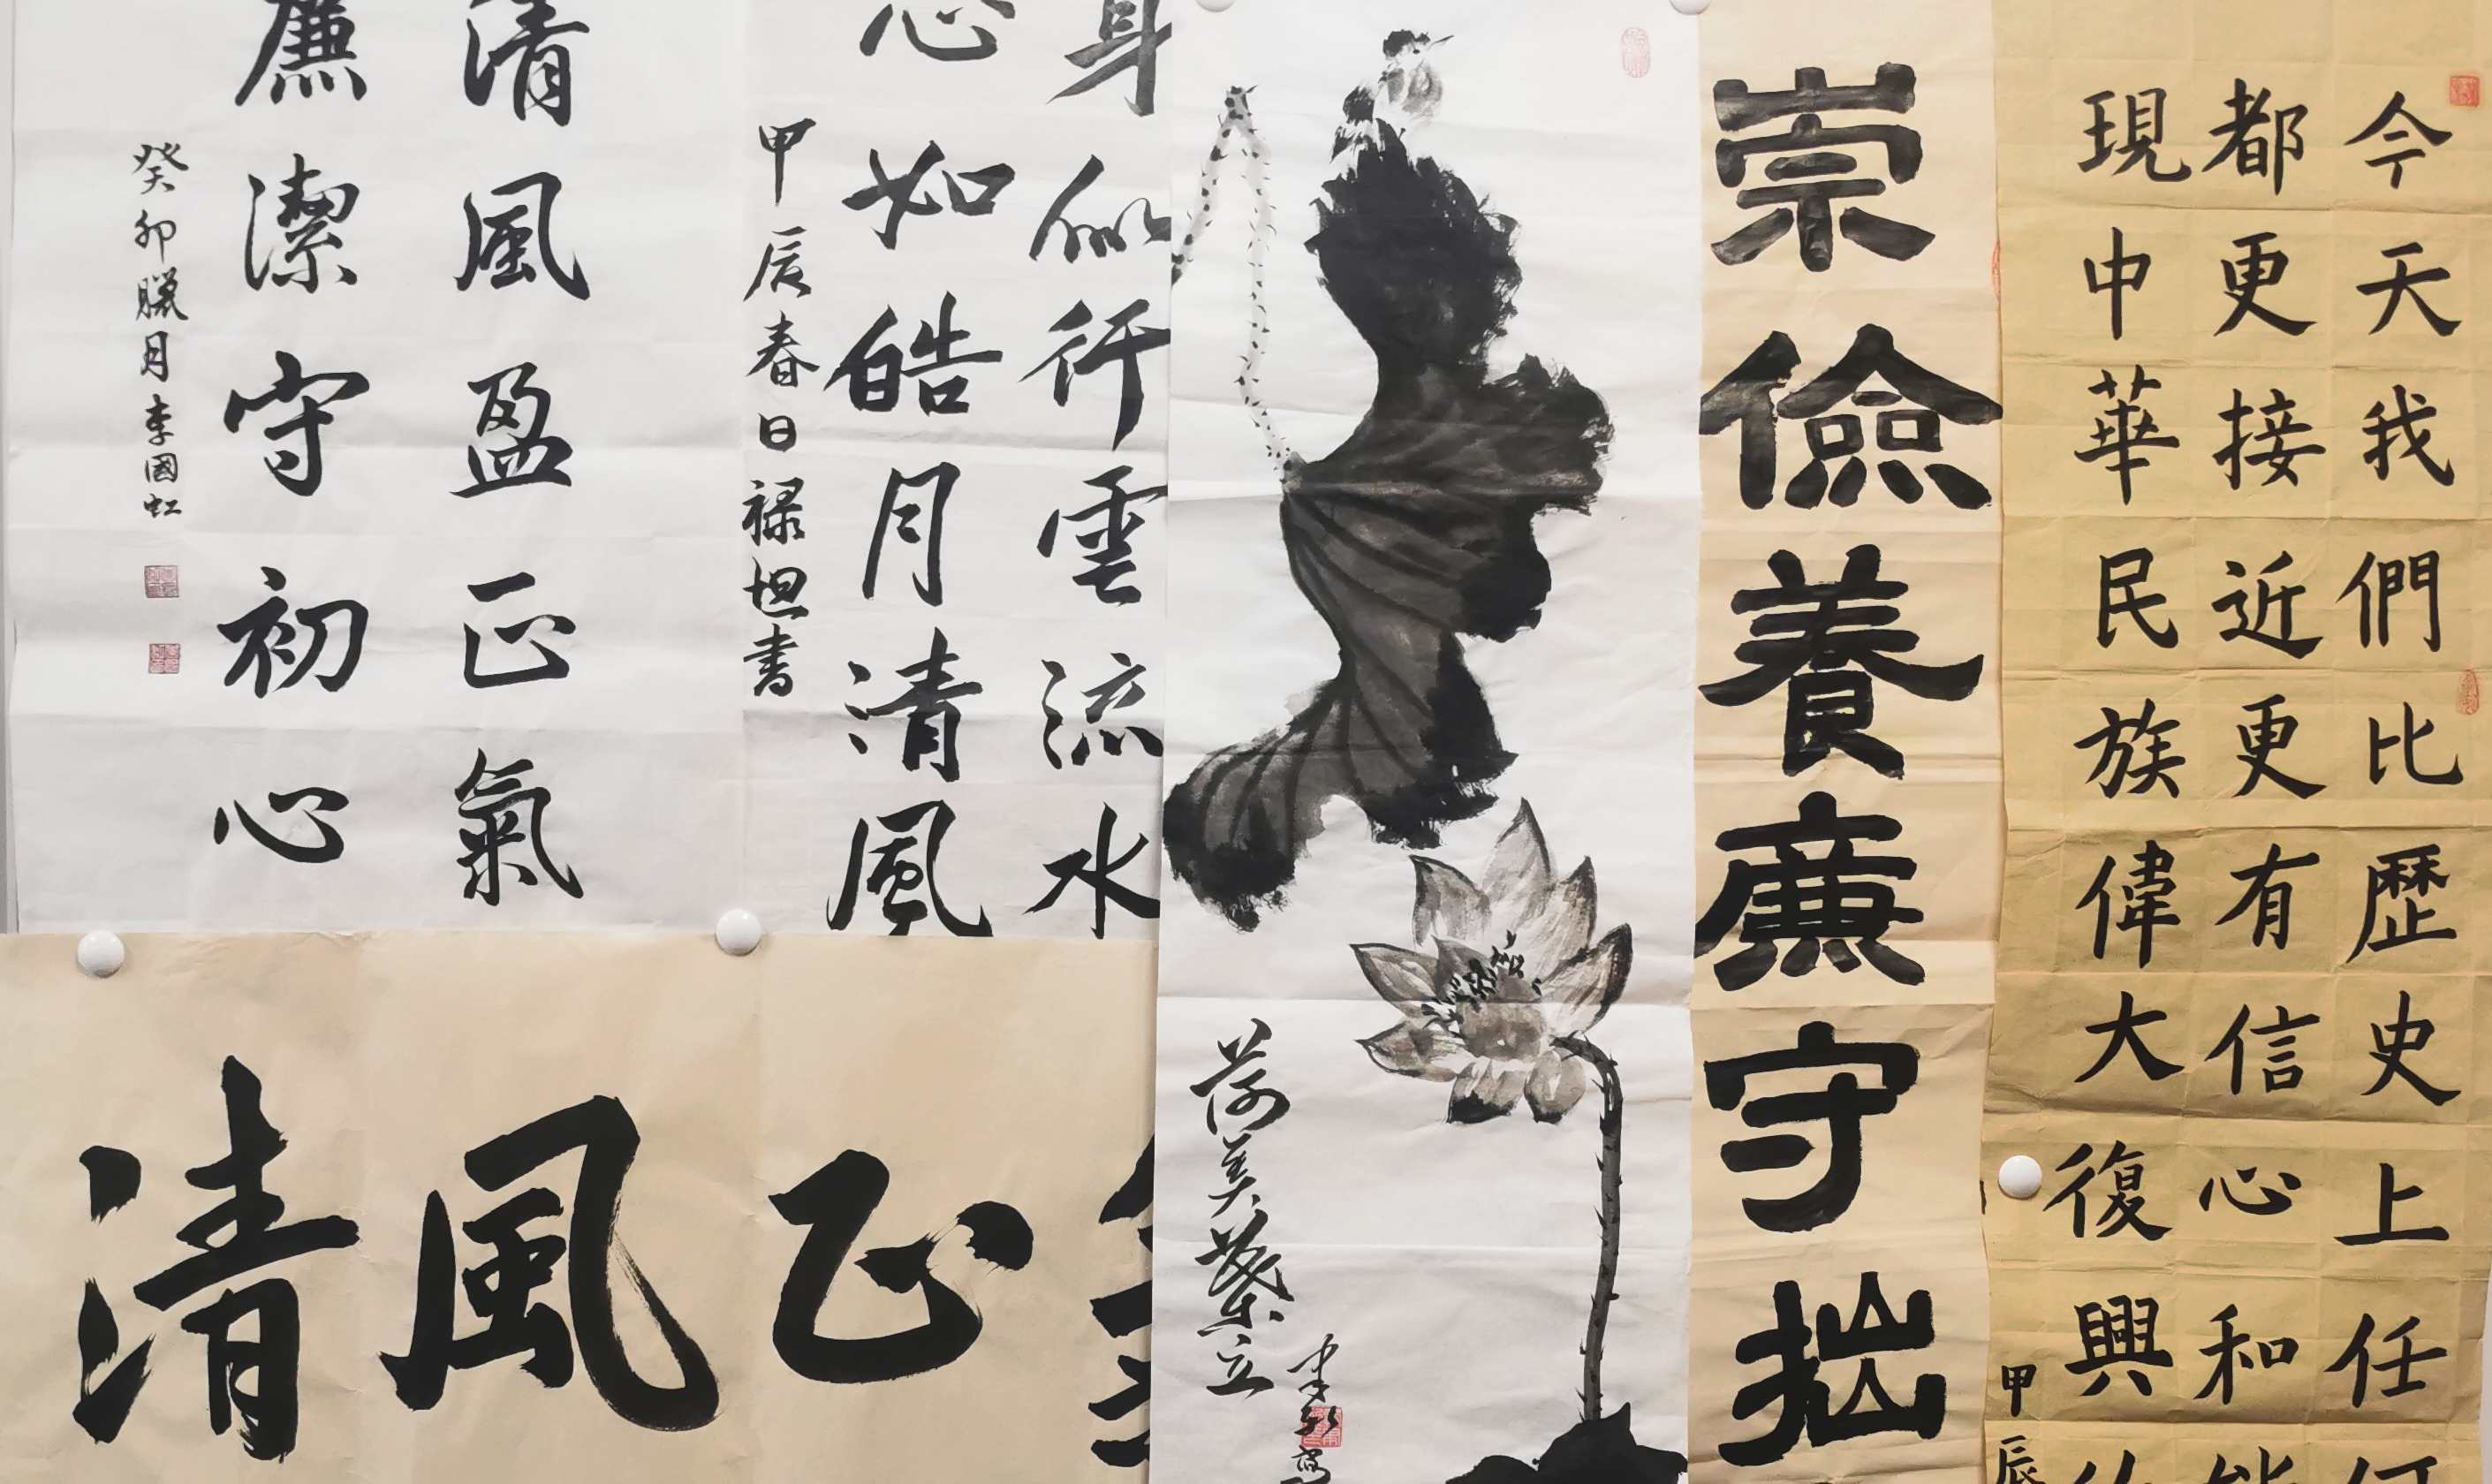 今天我們比歷史上任何
都更接近更有信心和能
現中華民族偉大復興的
甲辰
崇儉養廉守拙
荷美葉立
身似行雲流水
心如皓月清風
甲辰春日禄坦書
清風盈正氣
廉潔守初心
癸卯臘月李國虹
清風正氣